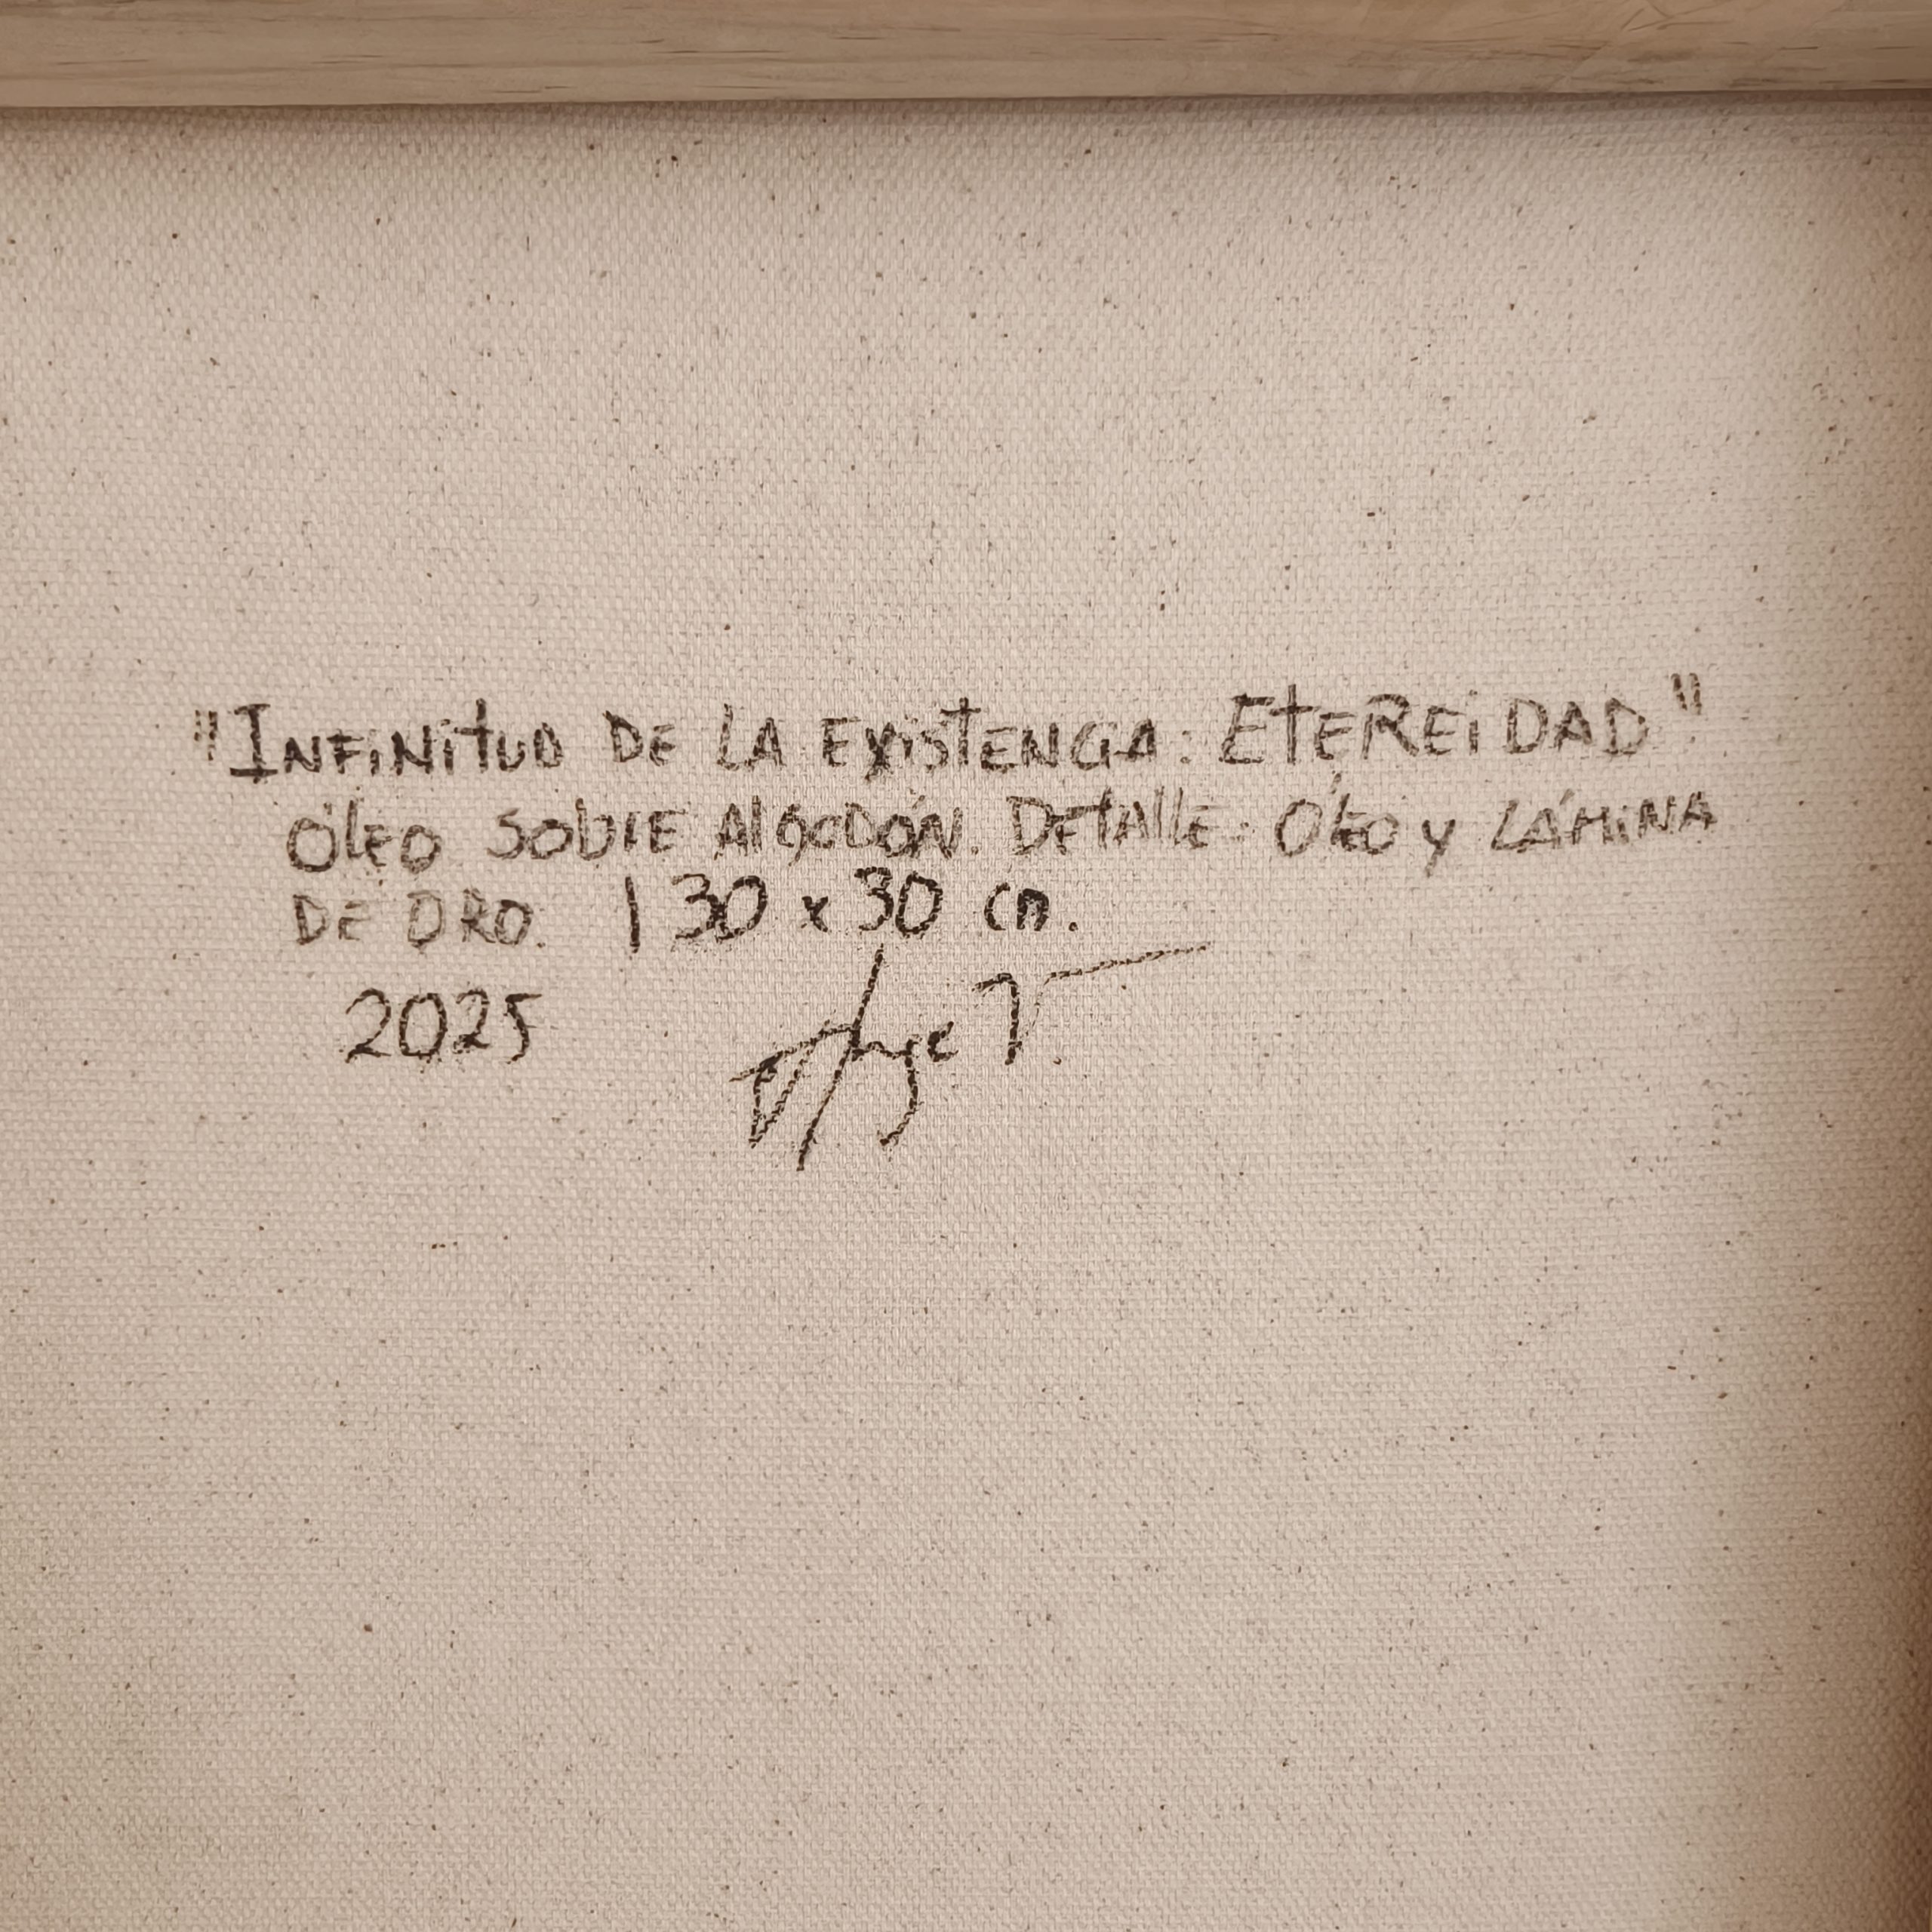 "INFINITUD DE LA EXISTENCIA: ETEREIDAD"
ÓLEO SOBRE ALGODÓN. DETALLE: ÓLEO Y LÁMINA
DE ORO. | 30 x 30 cm.
2025